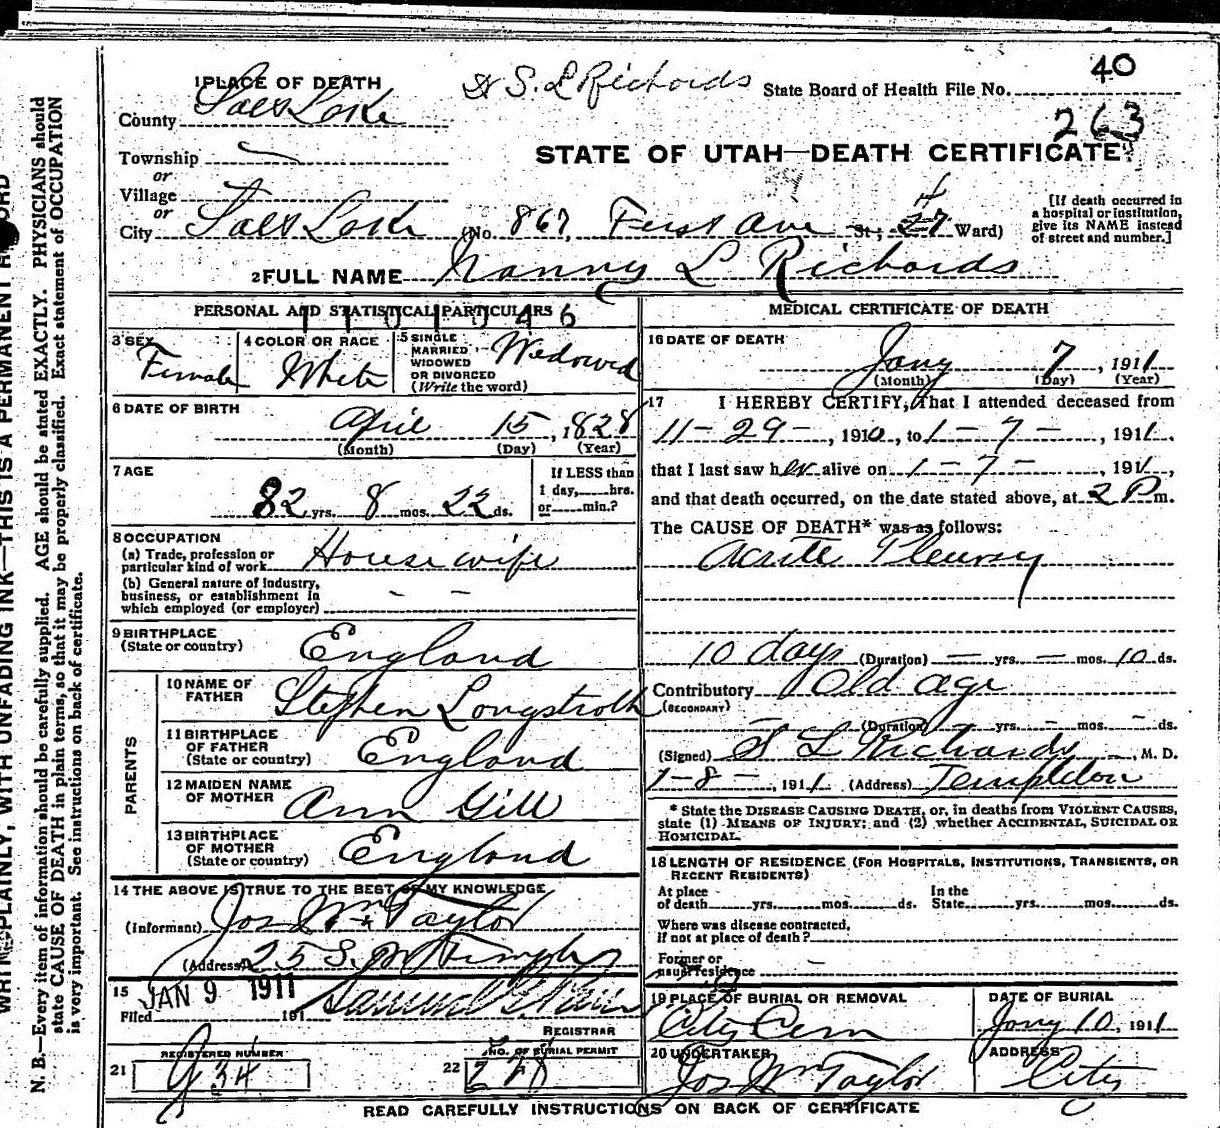 40
1 PLACE OF DEATH
Dr S. L Richards
State Board of Health File No.
263
County Salt Lake
STATE OF UTAH—DEATH CERTIFICATE
Township
or
Village
or
City Salt Lake (No. 867, First Ave St.; 4 27 Ward)
[If death occurred in a hospital or institution, give its NAME instead of street and number.]
2 FULL NAME Nanny L Richards
PERSONAL AND STATISTICAL PARTICULARS
3 SEX Female
4 COLOR OR RACE White
5 SINGLE MARRIED WIDOWED OR DIVORCED (Write the word) Widowed
6 DATE OF BIRTH
April 15, 1828
(Month) (Day) (Year)
7 AGE
82 yrs. 8 mos. 22 ds.
If LESS than 1 day, hrs. or min.?
8 OCCUPATION
(a) Trade, profession or particular kind of work Housewife
(b) General nature of industry, business, or establishment in which employed (or employer) – –
9 BIRTHPLACE (State or country) England
PARENTS
10 NAME OF FATHER Stephen Longstroth
11 BIRTHPLACE OF FATHER (State or country) England
12 MAIDEN NAME OF MOTHER Ann Gill
13 BIRTHPLACE OF MOTHER (State or country) England
14 THE ABOVE IS TRUE TO THE BEST OF MY KNOWLEDGE
(Informant) Jos Wm Taylor
(Address) 25 S. W Temple
15
Filed JAN 9 1911 191
REGISTRAR
21 REGISTERED NUMBER 34
22 NO. OF BURIAL PERMIT
MEDICAL CERTIFICATE OF DEATH
16 DATE OF DEATH
Jany 7, 1911
(Month) (Day) (Year)
17 I HEREBY CERTIFY, That I attended deceased from
11-29-, 1910, to 1-7-, 1911,
that I last saw her alive on 1-7-, 1911,
and that death occurred, on the date stated above, at 2 P m.
The CAUSE OF DEATH* was as follows:
Acute Pleurisy
10 days (Duration) — yrs. — mos. 10 ds.
Contributory Old age
(SECONDARY)
(Duration) – yrs. – mos. – ds.
(Signed) S L Richards, M. D.
1-8-, 1911 (Address) Templeton
* State the DISEASE CAUSING DEATH, or, in deaths from VIOLENT CAUSES, state (1) MEANS OF INJURY; and (2) whether ACCIDENTAL, SUICIDAL OR HOMICIDAL.
18 LENGTH OF RESIDENCE (FOR HOSPITALS, INSTITUTIONS, TRANSIENTS, OR RECENT RESIDENTS)
At place of death yrs. mos. ds. In the State yrs. mos. ds.
Where was disease contracted, if not at place of death?
Former or usual residence
19 PLACE OF BURIAL OR REMOVAL City Cem
DATE OF BURIAL Jany 10, 1911
20 UNDERTAKER Jos Wm Taylor
ADDRESS City
READ CAREFULLY INSTRUCTIONS ON BACK OF CERTIFICATE
PLAINLY, WITH UNFADING INK—THIS IS A PERMANENT RECORD
N. B.—Every item of information should be carefully supplied. AGE should be stated EXACTLY. PHYSICIANS should
state CAUSE OF DEATH in plain terms, so that it may be properly classified. Exact statement of OCCUPATION
is very important. See instructions on back of certificate.